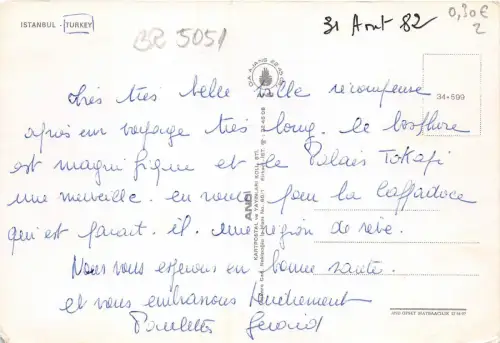 ISTANBUL - TURKEY
BR 5051
31 Aout 82
0,30€
2
34-599
Très très belle ville récompense
après un voyage très long. le bosphore
est magnifique et le Palais Tokapi
une merveille. en route pour la Cappadoce
qui est parait. il. une région de rêve.
Nous vous espérons en bonne santé.
et vous embrassons tendrement
Paulette Gérard
AND
KARTPOSTAL ve YAYINLARI KOLL. ŞTİ.